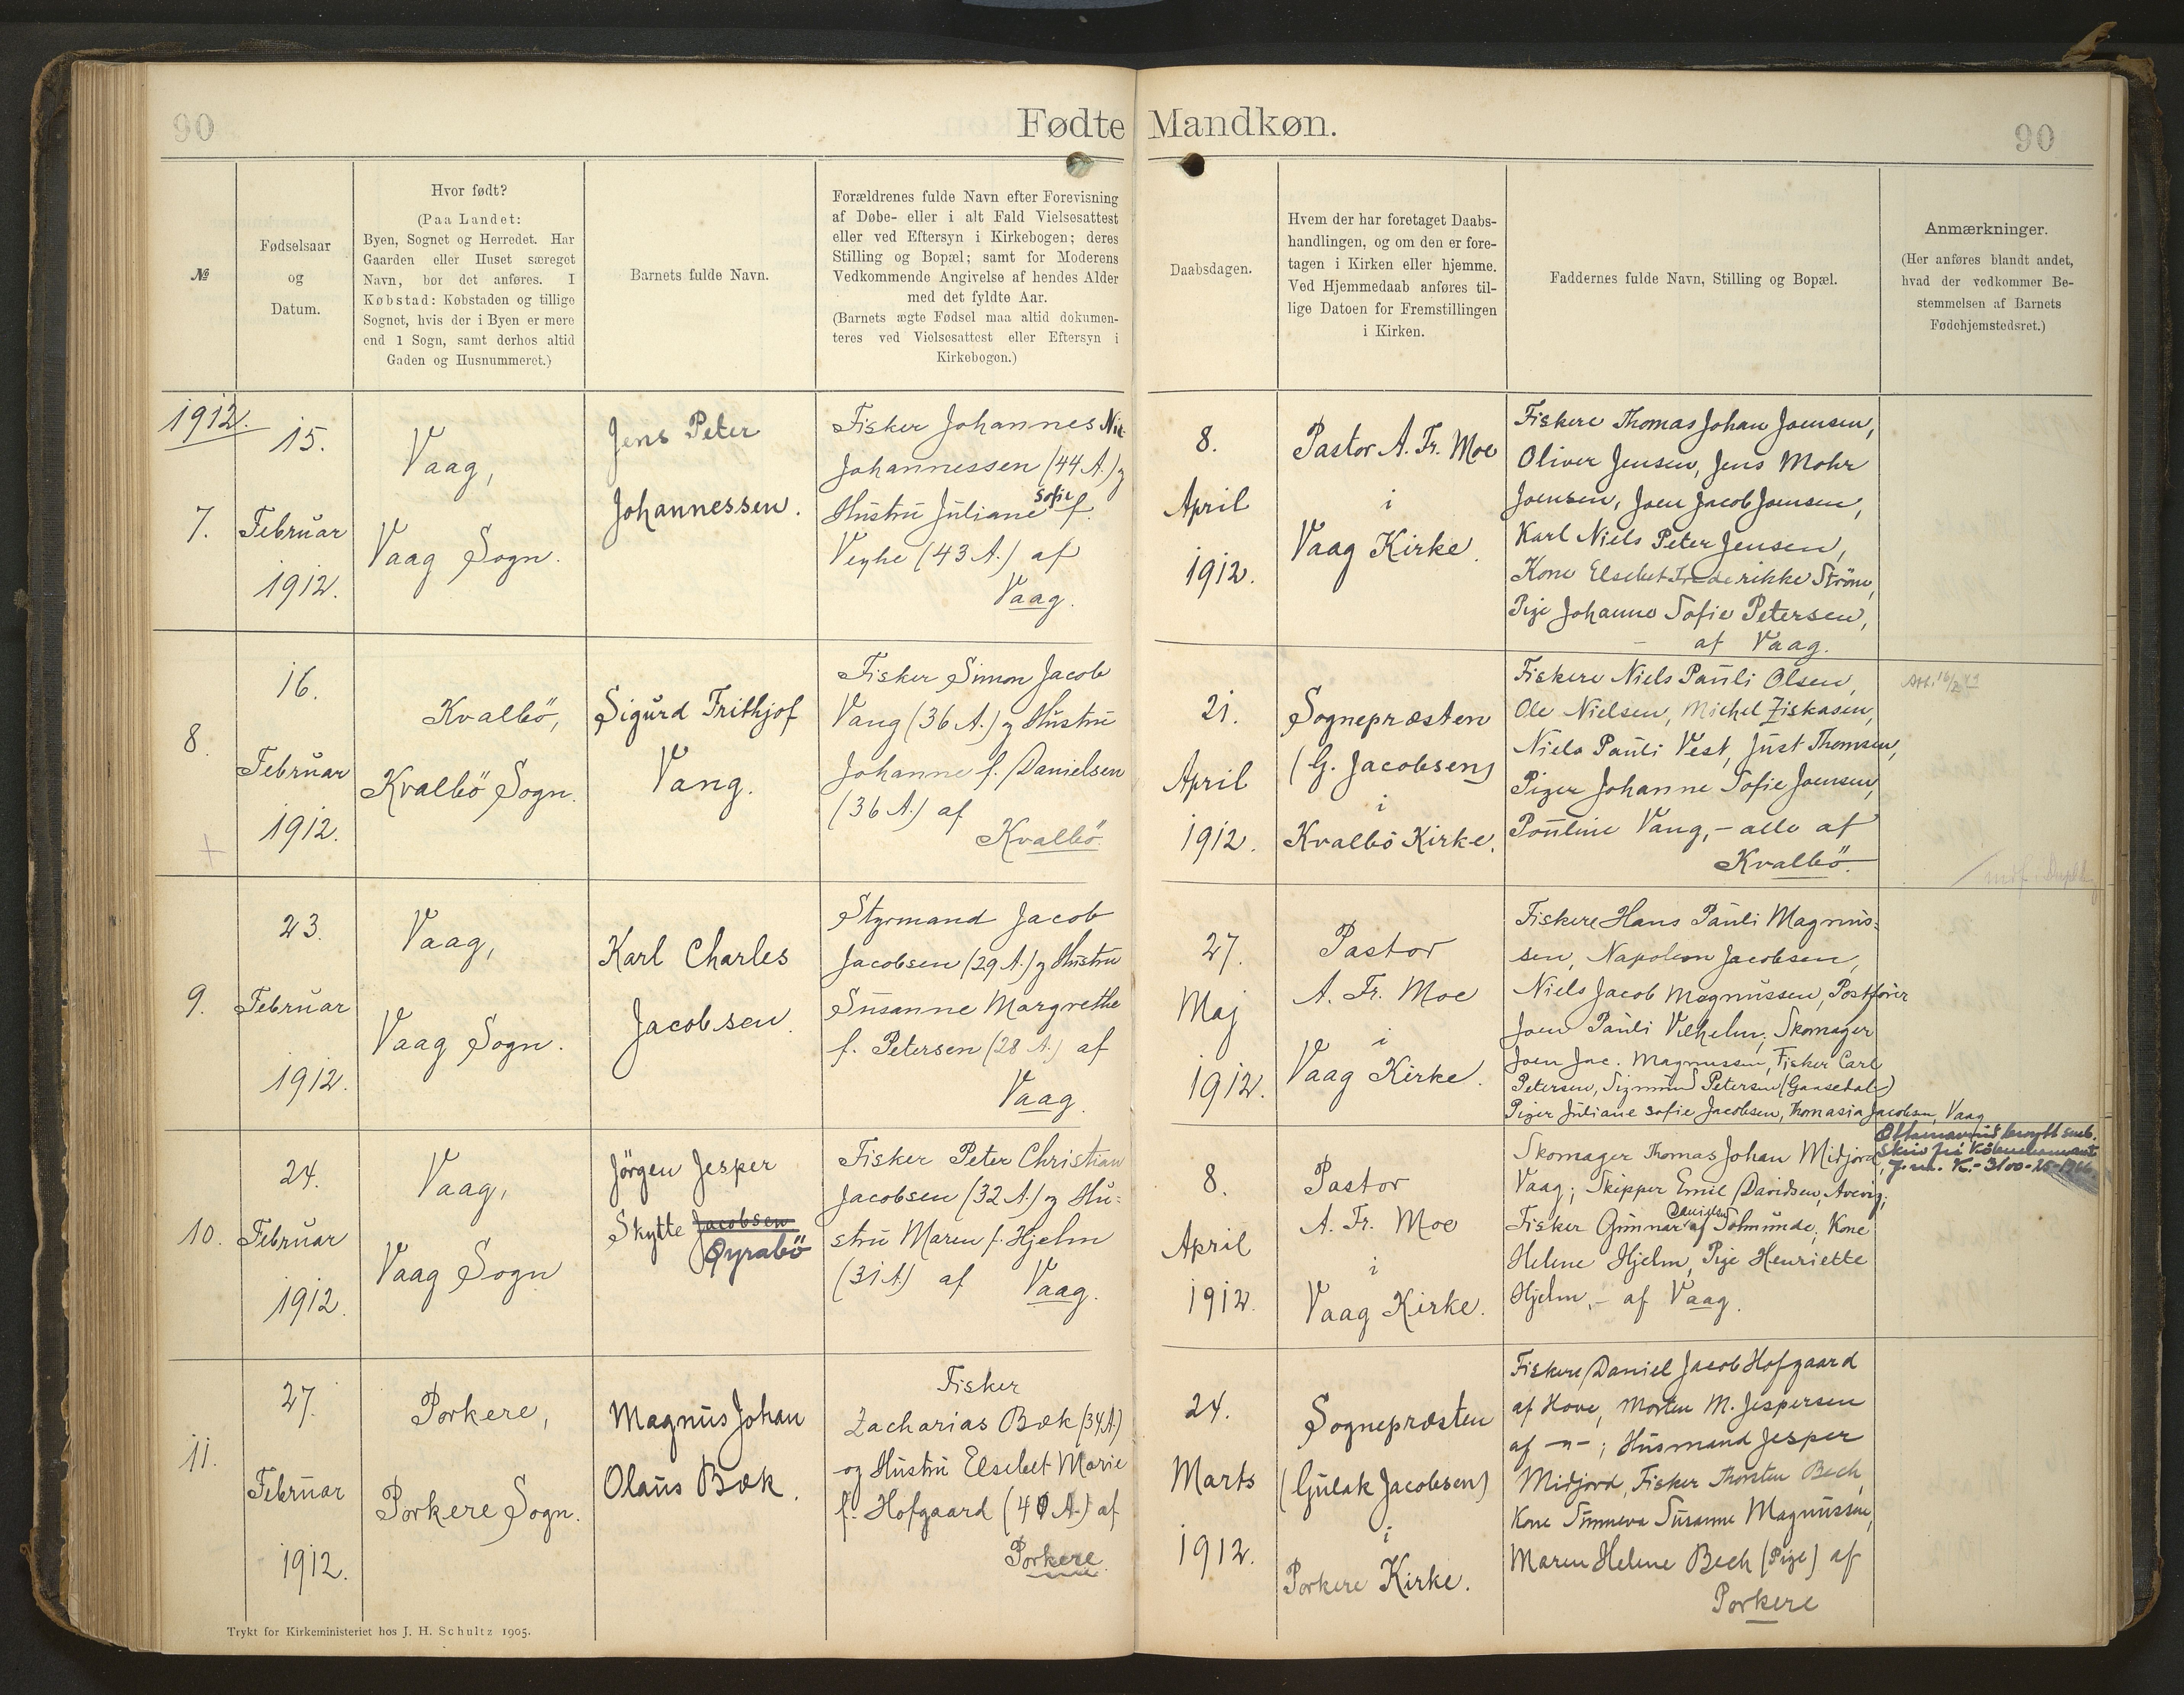 90
Fødte Mandkøn.
90
№
Fødselsaar
og
Datum.
Hvor født?
(Paa Landet:
Byen, Sognet og Herredet. Har
Gaarden eller Huset særeget
Navn, bør det anføres. I
Købstad: Købstaden og tillige
Sognet, hvis der i Byen er mere
end 1 Sogn, samt derhos altid
Gaden og Husnummeret.)
Barnets fulde Navn.
Forældrenes fulde Navn efter Forevisning
af Døbe- eller i alt Fald Vielsesattest
eller ved Eftersyn i Kirkebogen; deres
Stilling og Bopæl; samt for Moderens
Vedkommende Angivelse af hendes Alder
med det fyldte Aar.
(Barnets ægte Fødsel maa altid dokumen-
teres ved Vielsesattest eller Eftersyn i
Kirkebogen.)
Daabsdagen.
Hvem der har foretaget Daabs-
handlingen, og om den er fore-
tagen i Kirken eller hjemme.
Ved Hjemmedaab anføres til-
lige Datoen for Fremstillingen
i Kirken.
Faddernes fulde Navn, Stilling og Bopæl.
Anmærkninger.
(Her anføres blandt andet,
hvad der vedkommer Be-
stemmelsen af Barnets
Fødehjemstedsret.)
1912.
7.
15.
Februar
1912.
Vaag,
Vaag Sogn.
Jens Peter
Johannessen.
Fisker Johannes Nic
Johannessen (44 A.) og
Hustru Juliane Sofie f.
Veyhe (43 A.) af
Vaag.
8.
April
1912.
Pastor A. Fr. Moe
i
Vaag Kirke.
Fiskere Thomas Johan Joensen,
Oliver Jensen, Jens Mohr
Joensen, Joen Jacob Joensen,
Karl Niels Peter Jensen,
Kone Elsebet Frederikke Ström,
Pige Johanne Sofie Petersen,
– af Vaag.
8.
16.
Februar
1912.
Kvalbö,
Kvalbö Sogn.
Sigurd Frithjof
Vang.
Fisker Simon Jacob
Vang (36 A.) og Hustru
Johanne f. Danielsen
(36 A.) af
Kvalbö.
21.
April
1912.
Sognepræsten
(G. Jacobsen)
i
Kvalbö Kirke.
Fiskere Niels Pauli Olsen,
Ole Nielsen, Michel Ziskasen,
Niels Pauli Vest, Just Thomsen,
Piger Johanne Sofie Joensen,
Pouline Vang, – alle af
Kvalbö.
9.
23.
Februar
1912.
Vaag,
Vaag Sogn.
Karl Charles
Jacobsen.
Styrmand Jacob
Jacobsen (29 A.) og Hustru
Susanne Margrethe
f. Petersen (28 A.) af
Vaag.
27.
Maj
1912.
Pastor
A. Fr. Moe
i
Vaag Kirke.
Fiskere Hans Pauli Magnus-
sen, Napoleon Jacobsen,
Niels Jacob Magnussen, Postfører
Joen Pauli Vilhelm, Skomager
Joen Jac. Magnussen, Fisker Carl
Petersen, Sigmund Petersen (Gaasedal)
Piger Juliane Sofie Jacobsen, Thomasia Jacobsen, Vaag
10.
24.
Februar
1912.
Vaag,
Vaag Sogn
Jörgen Jesper
Skytte Jacobsen
Øyrabö
Fisker Peter Christian
Jacobsen (32 A.) og Hu-
stru Maren f. Hjelm
(31 A.) af Vaag.
8.
April
1912.
Pastor
A. Fr. Moe
i
Vaag Kirke.
Skomager Thomas Johan Midjord,
Vaag; Skipper Emil Davidsen, Aavevig;
Fisker Gunnar Danielsen af Solmunde; Kone
Helene Hjelm, Pige Henriette
Hjelm, – af Vaag.
11.
27.
Februar
1912.
Porkere,
Porkere Sogn.
Magnus Johan
Olaus Bæk.
Fisker
Zacharias Bæk (34 A)
og Hustru Elsebet Marie
f. Hofgaard (40 A.) af
Porkere.
24.
Marts
1912.
Sognepræsten
(Gulak Jacobsen)
i
Porkere Kirke.
Fiskere Daniel Jacob Hofgaard
af Hove, Morten M. Jespersen
af –"– ; Husmand Jesper
Midjord, Fisker Thorsten Bech,
Kone Sunneva Susanne Magnussen,
Maren Helene Bech (Pige) af
Porkere
Trykt for Kirkeministeriet hos J. H. Schultz 1905.